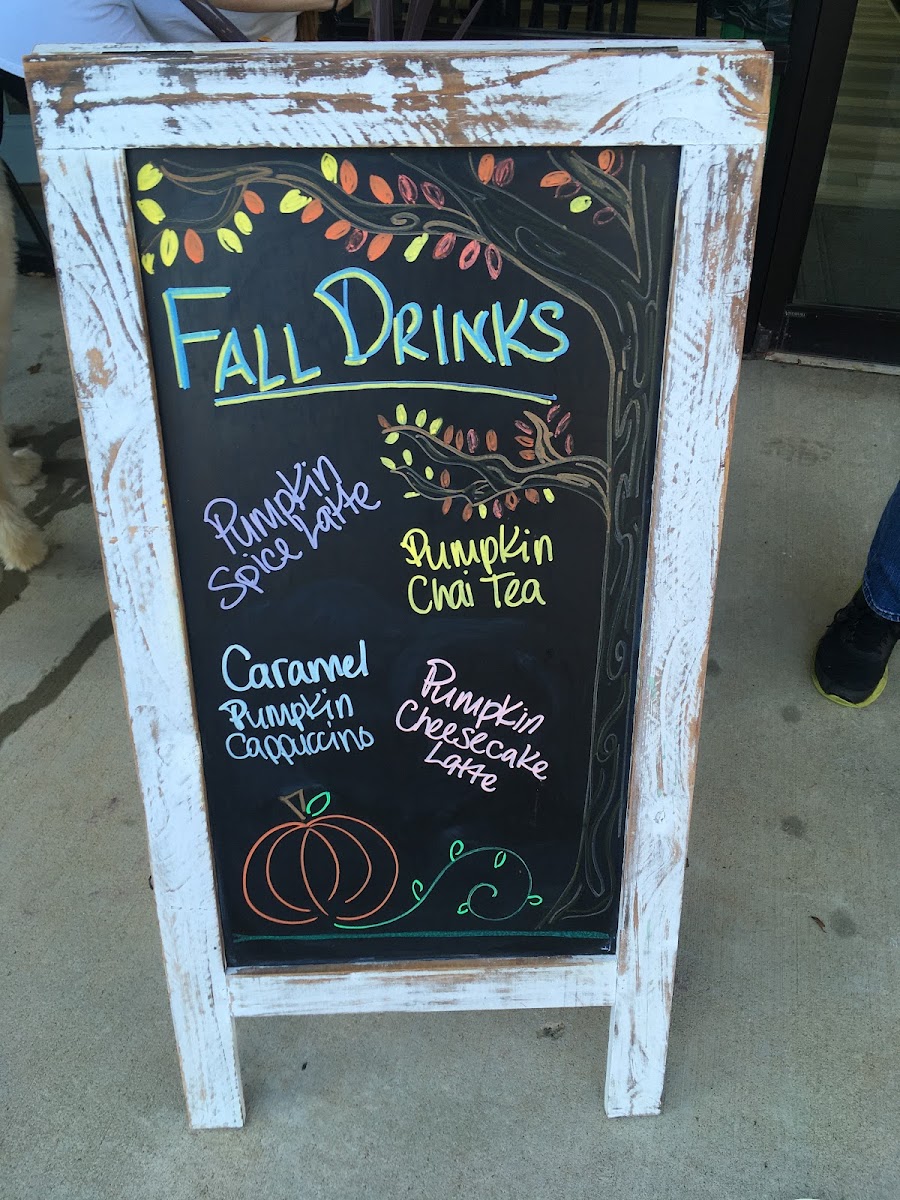 Fall Drinks
Pumpkin
Spice Latte
Pumpkin
Chai Tea
Caramel
Pumpkin
Cappuccino
Pumpkin
Cheesecake
Latte